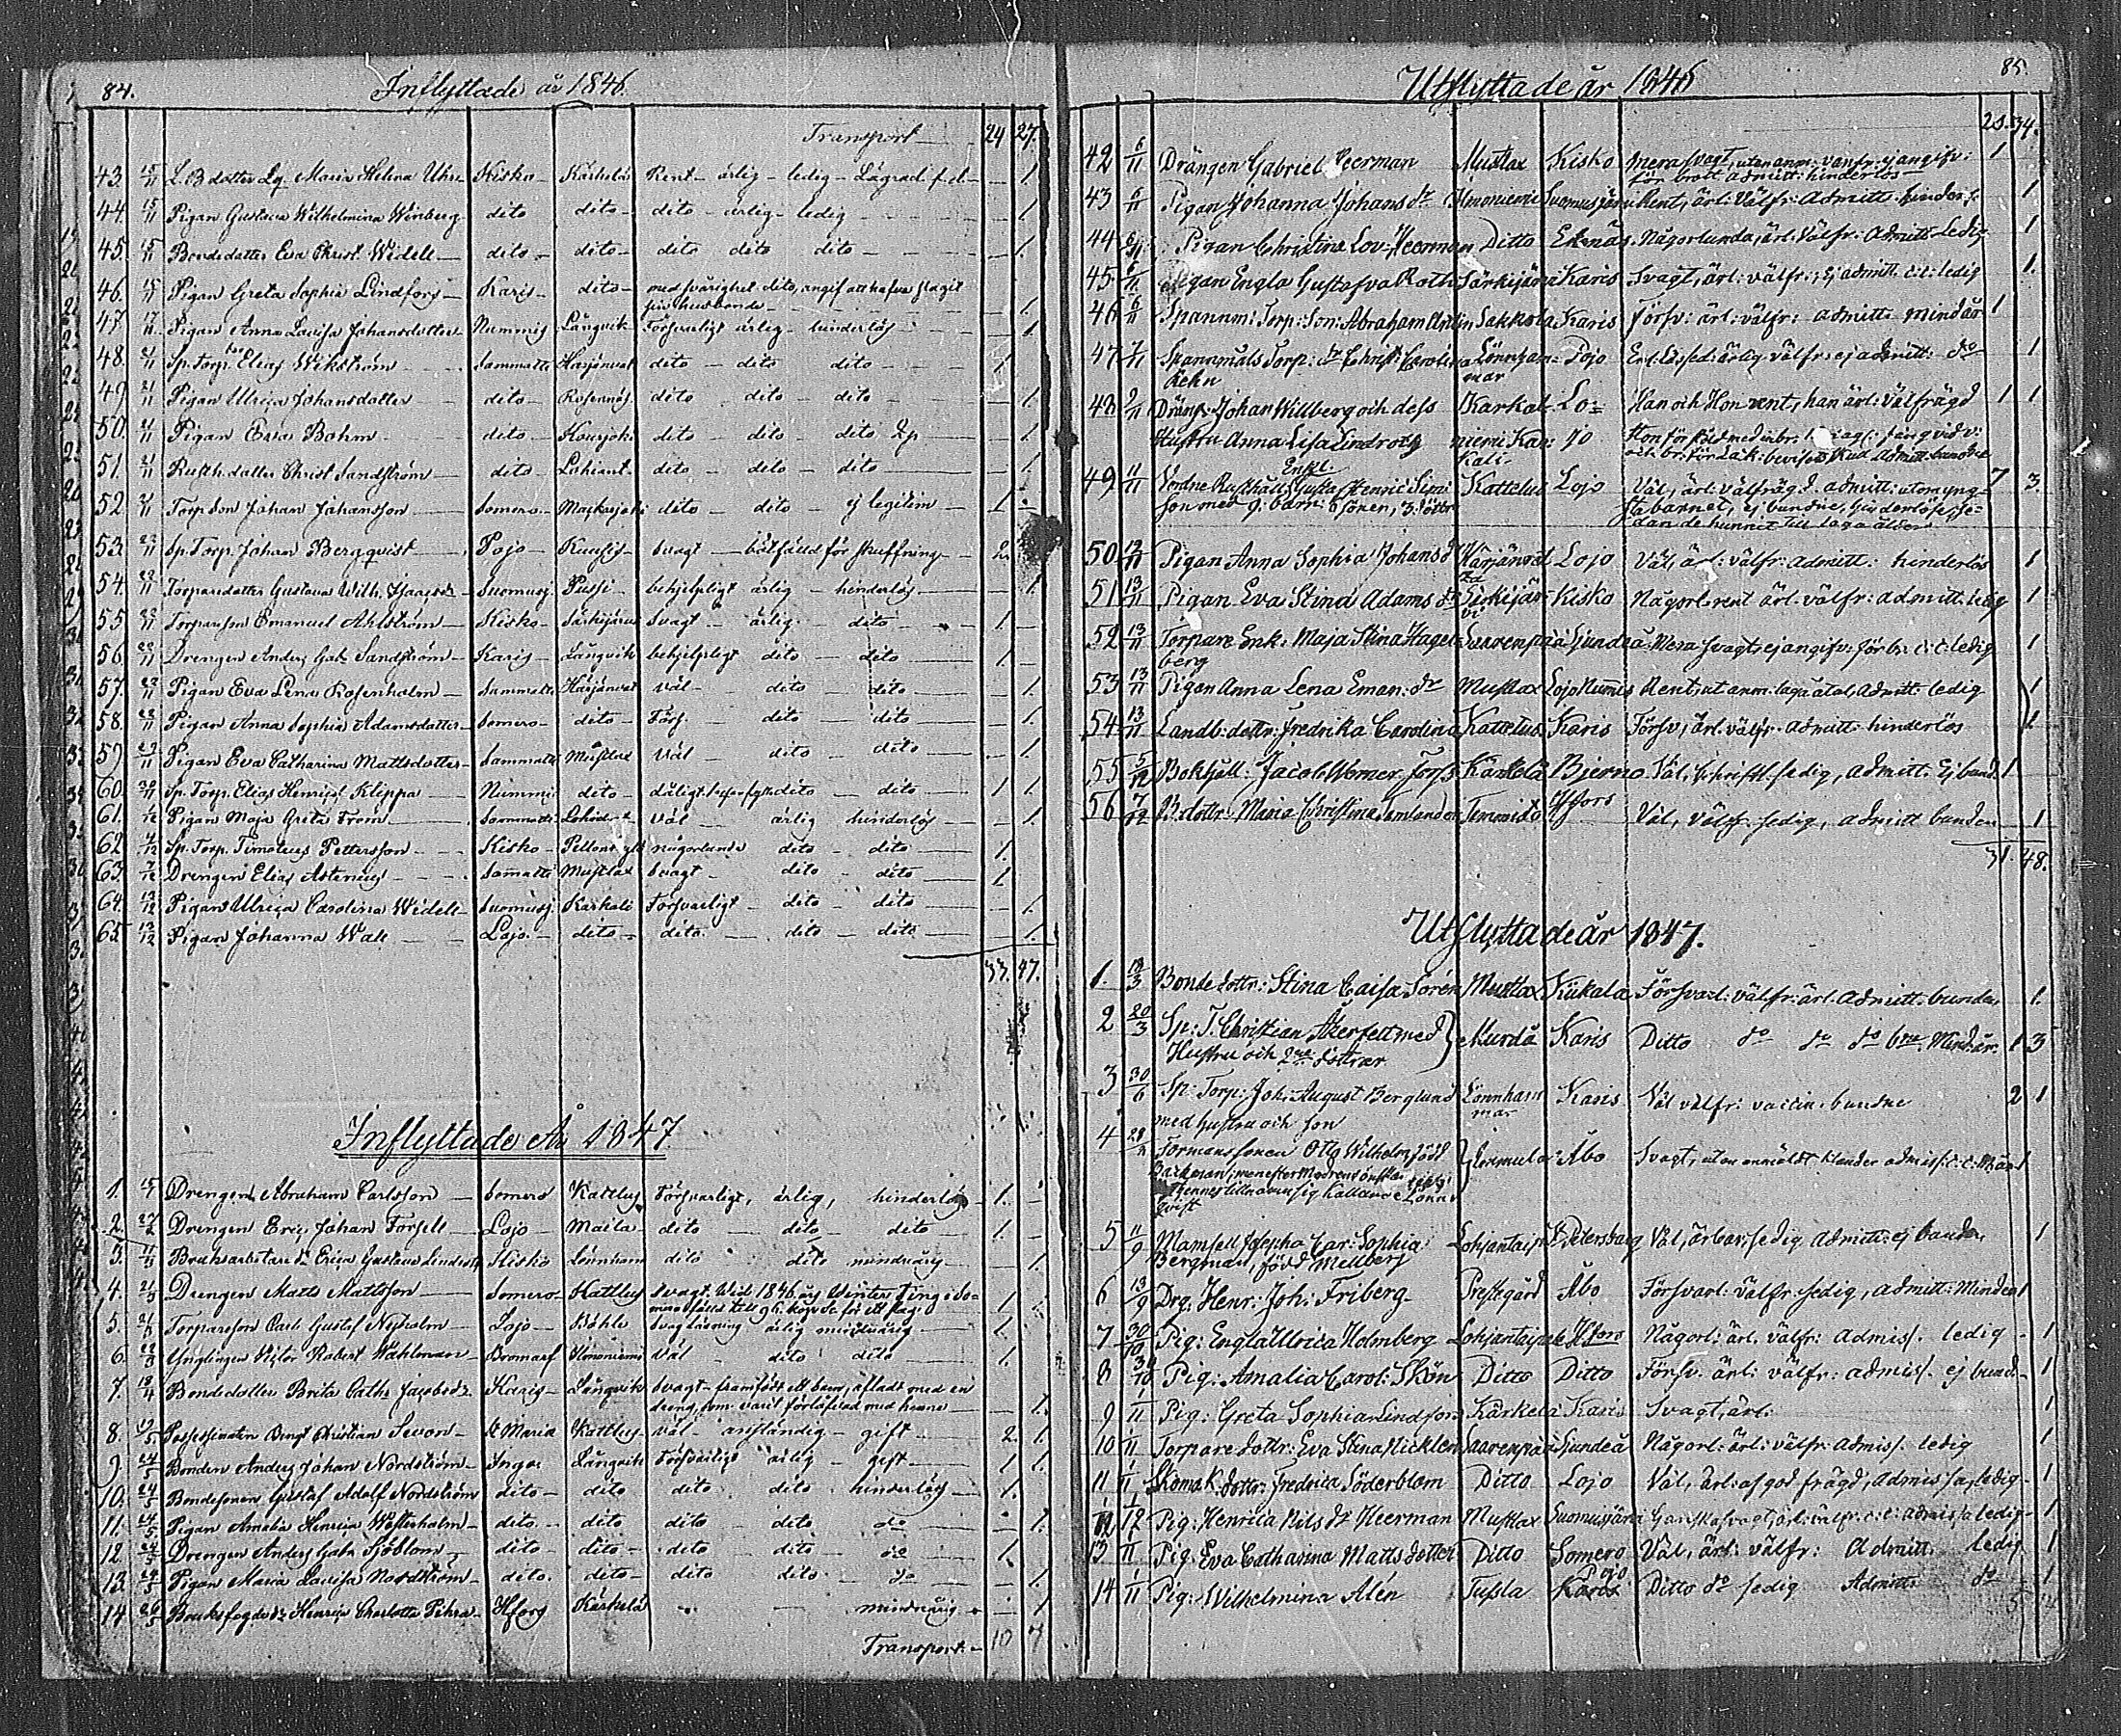 84.
Inflyttade år 1846.
Transport 24 27.
43. 15/11 L. B. dotter Lg. Maria Helena Uhr Kisko Kärkelä Rent ärlig ledig 1.
44. 15/11 Pigan Gustava Wilhelmina Winberg dito dito dito ärlig ledig 1.
45. 15/11 Bondedotter Eva Christ. Widell dito dito dito dito dito 1.
46. 15/11 Pigan Greta Sophia Lindfors Karis dito med svårighet dito, angif. att hafva slagit
sin husbonde 1.
47. 17/11 Pigan Anna Lovisa Johansdotter Nummis Långvik Försvarligt ärlig hinderlös 1.
48. 21/11 Sp. Torp. son Elias Wikström Sammatti Harjänvat dito dito dito 1.
49. 21/11 Pigan Ulrica Johansdotter dito Rosennäs dito dito dito 1.
50. 21/11 Pigan Eva Bohm dito Kourjoki dito dito dito 1.
51. 21/11 Rusth. dotter Christ Sandström dito Lohiant. dito dito dito 1.
52. 21/11 Torp. Son Johan Johansson Somero dito dito ej legitim 1.
53. 22/11 Sp. Torp. Johan Bergqvist Pojo svagt bötfälld för skuffning 2.
54. 22/11 Torparedotter Gustava Wilh. Suomusj. Pussi behjelpligt ärlig hinderlös 1.
55. 22/11 Torpareson Emanuel Ahlström Kisko Särkijärvi Svagt ärlig dito 1.
56. 22/11 Drengen Anders Gab. Sandström Karis Långvik behjelpligt dito dito 1.
57. 22/11 Pigan Eva Lena Rosenholm Sammatti Härjänvat väl dito dito 1.
58. 22/11 Pigan Anna Sophia Adamsdotter Somero dito Förs. dito dito 1.
59. 22/11 Pigan Eva Catharina Mattsdotter Sammatti Mustlax väl dito dito 1.
60. Sp. Torp. Elias Henricss. Klippa Nummis dito dåligt dito dito 1 1.
61. Pigan Maja Greta From Sammatti väl ärlig hinderlös 1.
62. Sp. Torp. Timoteus Pettersson Kisko någorlunda dito dito 1.
63. 7/12 Drengen Elias Astenius Sammatti Mustlax svagt dito dito 1.
64. 13/12 Pigan Ulrica Carolina Widell Suomusj. Karkali Försvarligt dito dito 1.
65. 13/12 Pigan Johanna Wall Lojo dito dito dito dito 1.
33. 47.
Inflyttade År 1847
1. Drengen Abraham Carlsson Somero Kattlus Försvarligt, ärlig, hinderlös 1.
2. Drengen Eric Johan Forsell Lojo Maila dito dito dito 1.
3. Bruksarbetare dr Erica Gustava Kisko Lönnham dito dito mindreårig 1.
4. Drengen Matts Mattsson Somero Kattlus svagt. Wid 1846 års Vinter Ting i So-
1.
5. Torpareson Carl Gustaf Nyholm Lojo Böhle svag läsning ärlig mindreårig 1.
6. Ynglingen Victor Robert Wåhlman Bromarf Hönoniemi väl dito dito 1.
7. 18/4 Bondedotter Brita Cath. Jacobsdr Karis Långvik svagt framfödt ett barn, afladt med en
dreng, som varit förlofvad med henne 1.
8. Possessionaten Bengt Christian Sevon St Maria Kattlus väl anständig gift 2. 1.
9. 24/5 Bonden Anders Johan Nordström Ingå Långvik Försvarligt ärlig gift 1. 1.
10. 24/5 Bondesonen Gustaf Adolf Nordström dito dito dito dito hinderlös 1.
11. 24/5 Pigan Amalia Henrica Westerholm dito dito dito dito do 1.
12. 24/5 Drengen Anders Gab. Sjöblom dito dito dito dito do 1.
13. 24/5 Pigan Maria Lovisa Nordström dito dito dito dito do 1.
14. 26/5 Bruksfogdedr Henrica Charlotta Pihra Hfors Kärkelä mindreårig 1
Transport 10 7
85.
Utflyttade år 1846
25. 34.
42 6/11 Drängen Gabriel Heerman Mustlax Kisko mera svagt, utan anm: vanfr: ej angifv: 1
för brott admitt: hinderlös
43 6/11 Pigan Johanna Johans dr Hmoniemi Suomusjärvi Rent, ärl: välfr: admitt. hinder. 1
44 6/11 Pigan Christina Lov: Heerman Ditto Ekenäs Någorlunda, ärl. välfr. admitt ledig 1
45 6/11 Pigan Engla Gustafva Roth Särkijärvi Karis Svagt, ärl: välfr: ej admitt. c:c: ledig 1.
46 6/11 Spannm: Torp: Son: Abraham Antin Sakkola Karis Försv: ärl: välfr: admitt. mindår 1
47 7/11 Spannmåls Torp: dr Christ: Carolina Lönnham- Pojo ärlig välfr: ej admitt: do 1
Rehn mar
48 9/11 Dräng: Johan Willberg och dess Karkal- Lo= Han och Hon rent, han ärl: välfrägd 1 1
Hustru Anna Lisa Lindroos niemi Kar: jo
Kali
49 11/11 Enkl. Kattelus Lojo Väl, ärl: välfrägd. admitt: utom yng- 7 3.
son med 9. barn: 6 söner, 3. döttr sta barnet, ej bundne, hinderlöse, se-
dan de hunnit till laga ålder
50 13/11 Pigan Anna Sophia Johans dr Härjänvat Lojo Väl, ärl: välfr: admitt: hinderlös 1
51 13/11 Pigan Eva Stina Adams dr Särkijär- Kisko Någorl. rent ärl: välfr: admitt. ledig 1
vi
52 13/11 Torpare Enk: Maja Stina Hager= Saarenpää Sjundeå Mera svagt, ej angifv: förbr: c:c: ledig 1
berg
53 13/11 Pigan Anna Lena Eman: dr Mustlax Lojo Nums Rent, utanm: laga åtal. Admitt. ledig 1
54 13/11 Landb: dottr: Fredrika Carolina Kattelus Karis Försv, ärl. välfr. admitt: hinderlös 1
55 5/12 Bokhåll: Jacob Werner Forss Kärkelä Bjerno Väl, Christl. sedig, admitt. Ej bund. 1
56 7/12 B. dottr: Maria Christina Hfors Väl, välfr: sedig, admitt bunden 1
31. 48.
Utflyttade år 1847.
1. 18/3 Bonde dottr: Stina Caisa Sorén Mustlax Kiikala Försvarl: välfr: ärl. admitt. bunden 1.
2 20/3 Sp: T. Christian Åkerfelt med Murda Karis Ditto do do do Mindår. 1 3
Hustru och 2ne döttrar
3 30/6 Sp: Torp: Joh: August Berglund Lönnham Karis Väl välfr: vaccin. bundne 2 1
med hustru och son mar
4 Formanssonen Otto Wilhelm född Åbo Svagt, utan anmäldt klander admiss. c:c: 1
Backman, men efter Modrens önskan
hennes tillnamn sig kallande Lönn
qvist
5 11/9 Mamsell Josepha Car: Sophia Lohjantaipale St Petersburg Väl, ärbar, sedig admitt: ej bunden 1
Bergman, född Mellberg
6 13/9 Drg: Henr: Joh: Friberg Prestgård Åbo Försvarl: välfr sedig, admitt: Minder 1
7 30/10 Pig: Engla Ulrica Holmberg Lohjantaipale Hfors Någorl: ärl. välfr: admiss. ledig 1
8 30/10 Pig: Amalia Carol: Skön Ditto Ditto Försv: ärl: välfr: admiss. ej bund. 1
9 1/11 Pig: Greta Sophia Lindfors Kärkelä Karis Svagt, ärl: 1
10 1/11 Torpare dottr: Eva Stina Nicklen Saarenpää Sjundeå Någorl: ärl: välfr: admiss. ledig 1
11 1/11 Skomak. dottr: Fredrica Söderblom Ditto Lojo Väl, ärl: af god frägd, admissa, ledig 1
12 1/12 Pig: Henrica Nils dr Heerman Mustlax Suomusjärvi Ganska svagt, ärl: välfr. c:c: admissa ledig 1
13 1/11 Pig: Eva Catharina Matts dotter Ditto Somero Väl, ärl: välfr: Admitt. ledig 1
14 1/11 Pig: Wilhelmina Alén Tussla Pojo Karis Ditto do sedig Admitt. do 1